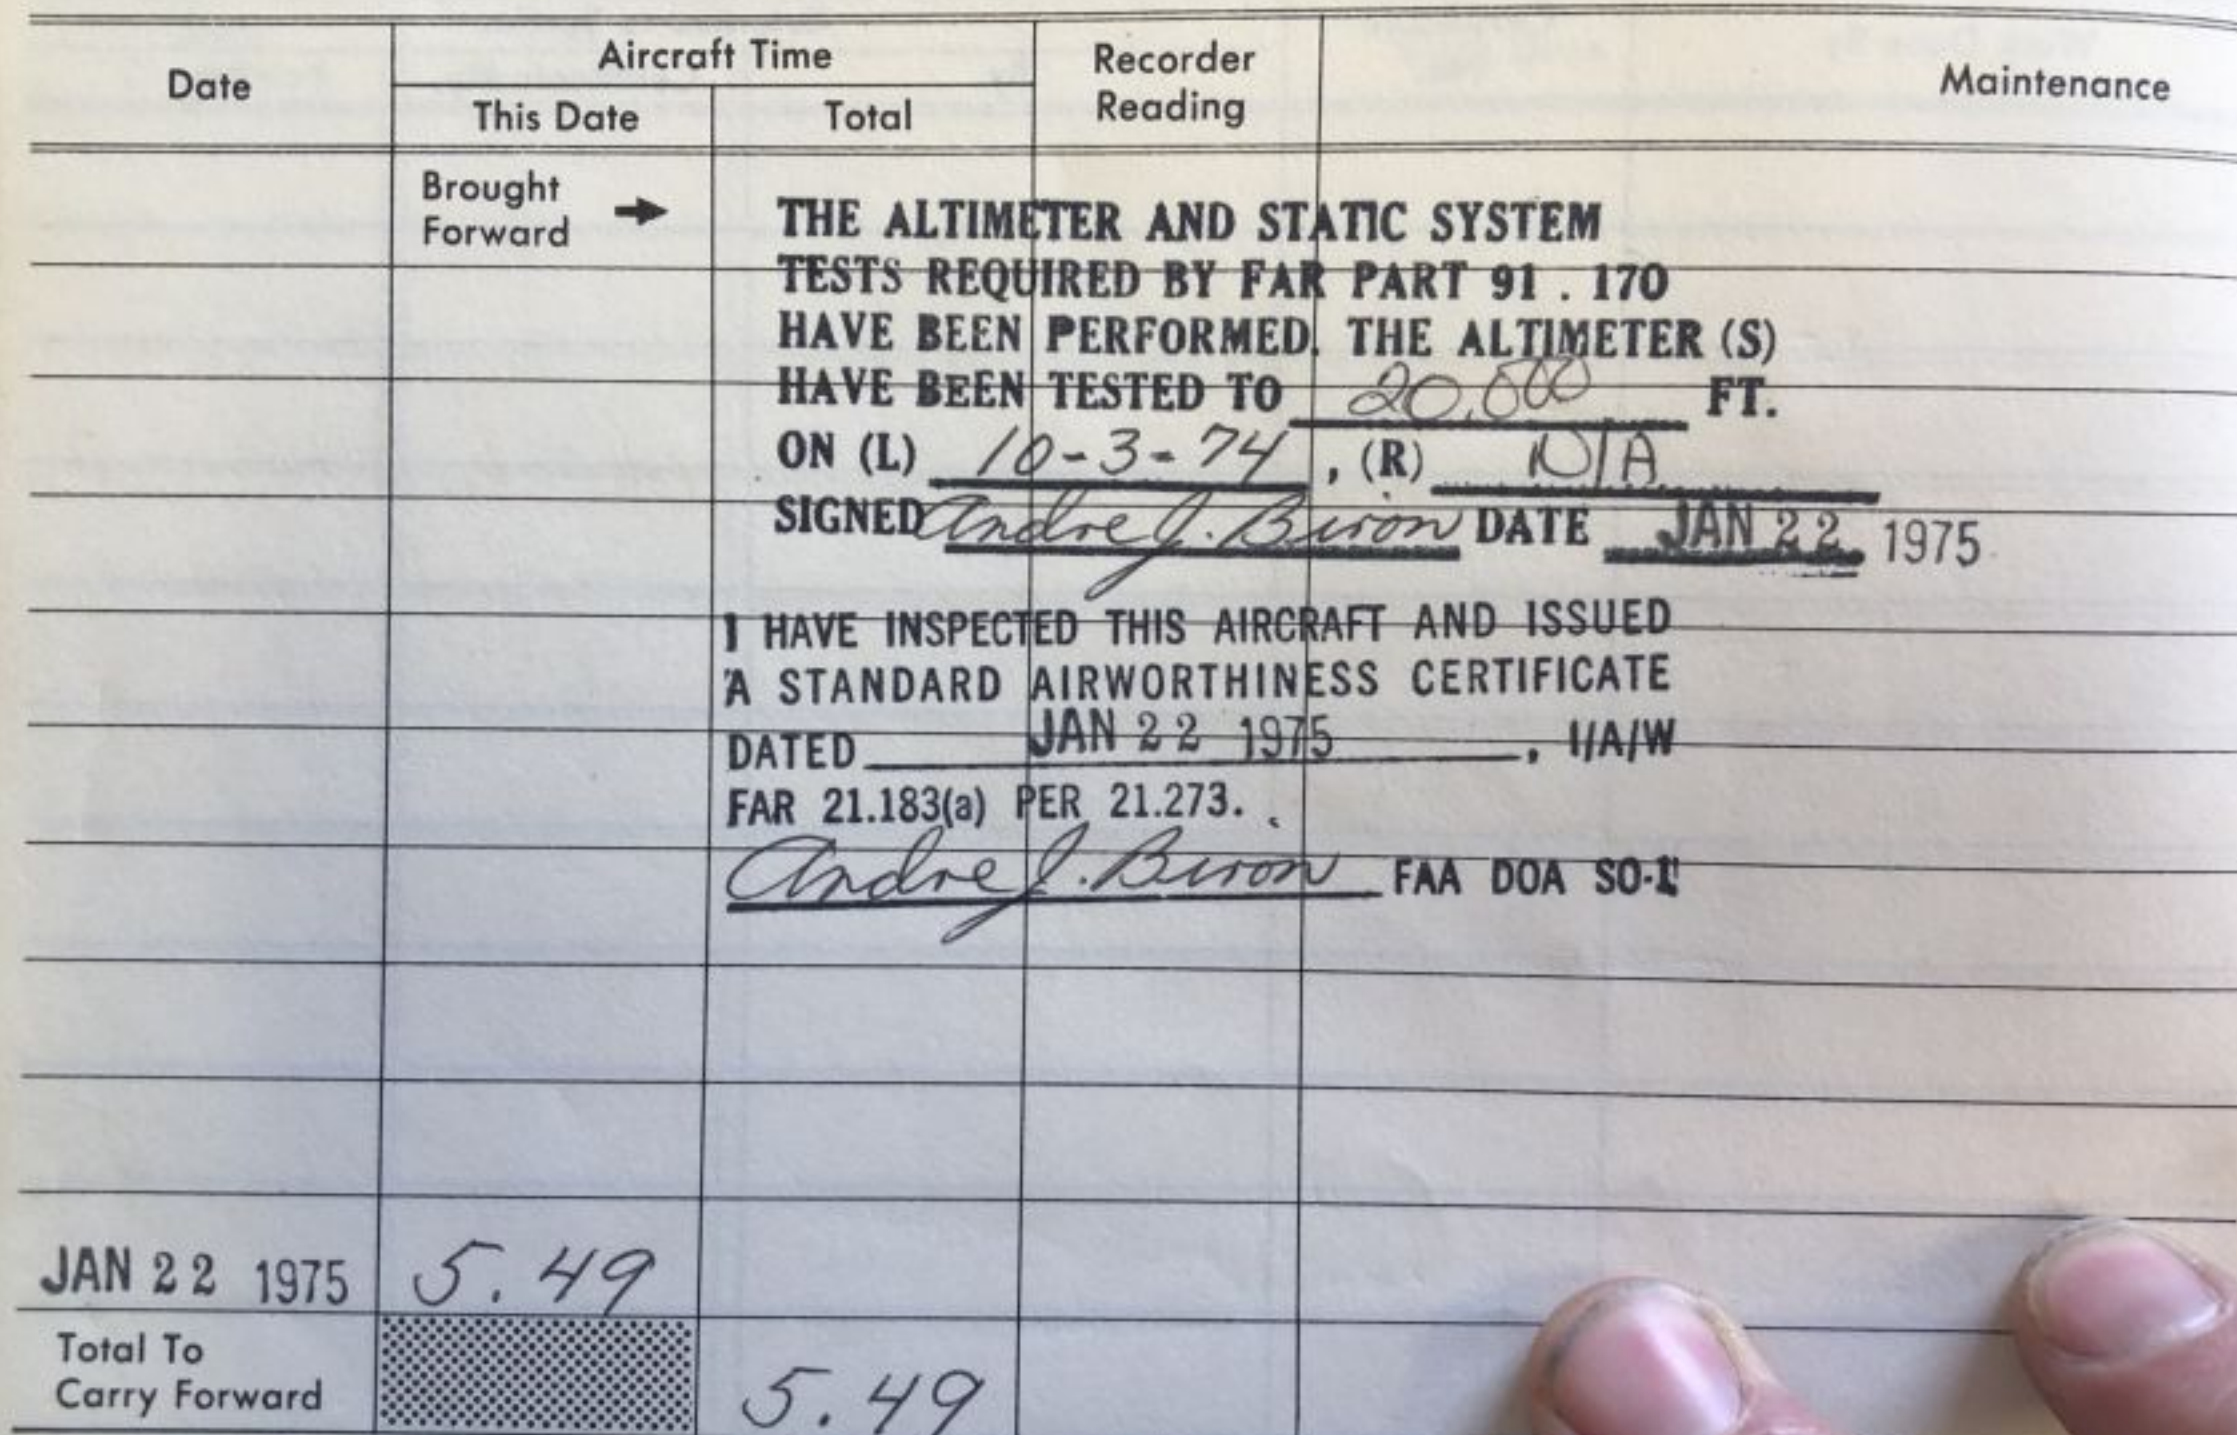 Date
Aircraft Time
This Date
Total
Recorder
Reading
Maintenance
Brought
Forward
THE ALTIMETER AND STATIC SYSTEM
TESTS REQUIRED BY FAR PART 91 . 170
HAVE BEEN PERFORMED. THE ALTIMETER (S)
HAVE BEEN TESTED TO 20,000 FT.
ON (L) 10-3-74, (R) N/A
SIGNED Andre J. Biron DATE JAN 22 1975
I HAVE INSPECTED THIS AIRCRAFT AND ISSUED
A STANDARD AIRWORTHINESS CERTIFICATE
DATED JAN 22 1975, I/A/W
FAR 21.183(a) PER 21.273.
Andre J. Biron FAA DOA SO-1
JAN 22 1975 5.49
Total To
Carry Forward
5.49